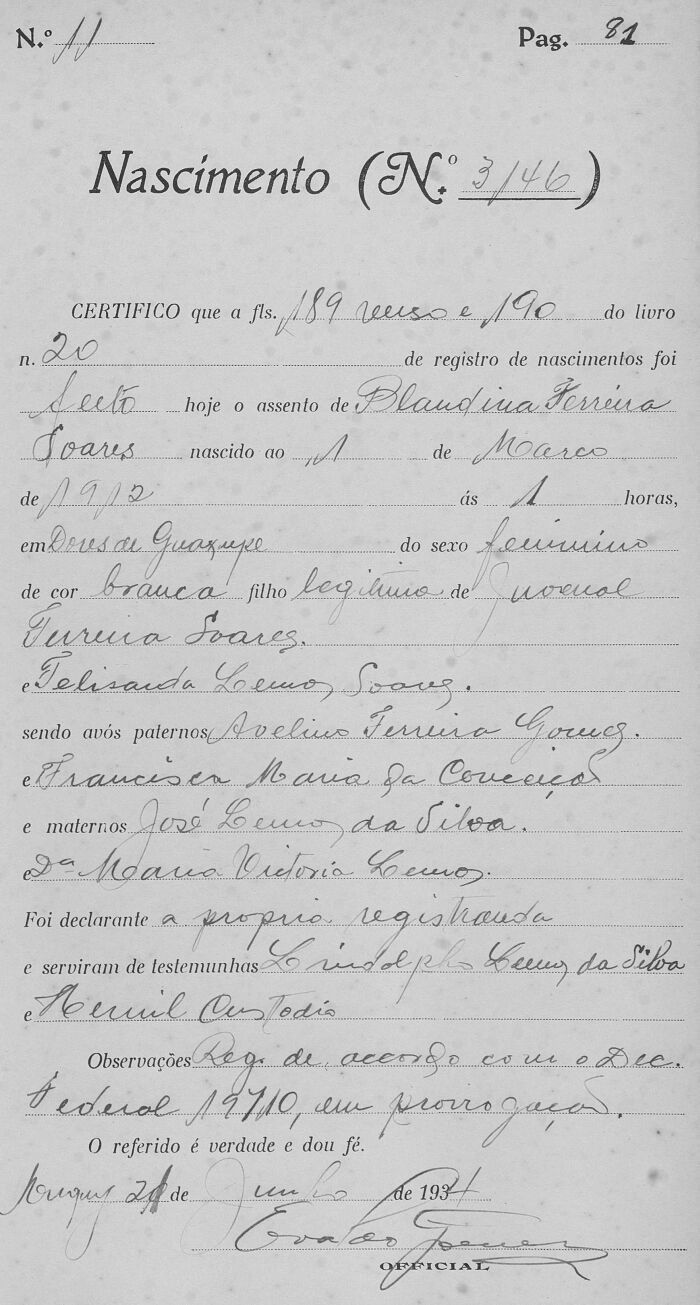 N.º 11 Pag. 81
Nascimento (N.º 3146)
CERTIFICO que a fls. 189 verso e 190 do livro
n. 20 de registro de nascimentos foi
feito hoje o assento de Blandina Ferreira
Soares nascido ao 1 de Março
de 1912 ás 1 horas,
em Dores de Guaxupe do sexo feminino
de cor branca filho legitima de Juvenal
Ferreira Soares.
e Felisarda Lemos Soares.
sendo avós paternos Avelino Ferreira Gomes.
e Francisca Maria da Conceição
e maternos José Lemos da Silva.
e Dª Maria Victoria Lemos.
Foi declarante a propria registranda
e serviram de testemunhas Lindolpho Lemos da Silva
e Custodio
Observações Reg. de accordo com o Dec.
Federal 19710, em prorrogação.
O referido é verdade e dou fé.
21 de Junho de 1934
OFFICIAL